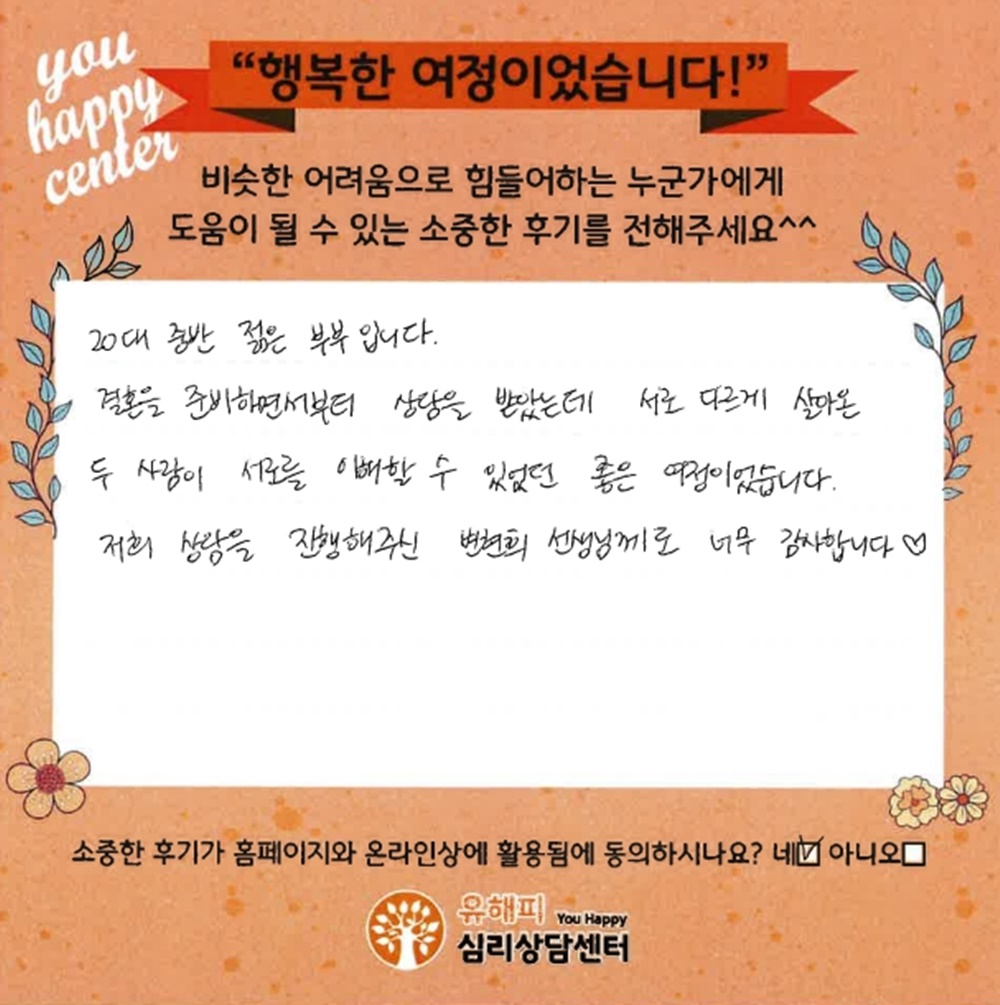 you
happy
center
“행복한 여정이었습니다!”
비슷한 어려움으로 힘들어하는 누군가에게
도움이 될 수 있는 소중한 후기를 전해주세요^^
20대 중반 젊은 부부입니다.
결혼을 준비하면서부터 상담을 받았는데 서로 다르게 살아온
두 사람이 서로를 이해할 수 있었던 좋은 여정이었습니다.
저희 상담을 진행해주신 변현희 선생님께도 너무 감사합니다♡
소중한 후기가 홈페이지와 온라인상에 활용됨에 동의하시나요? 네☑ 아니오☐
유해피 You Happy
심리상담센터